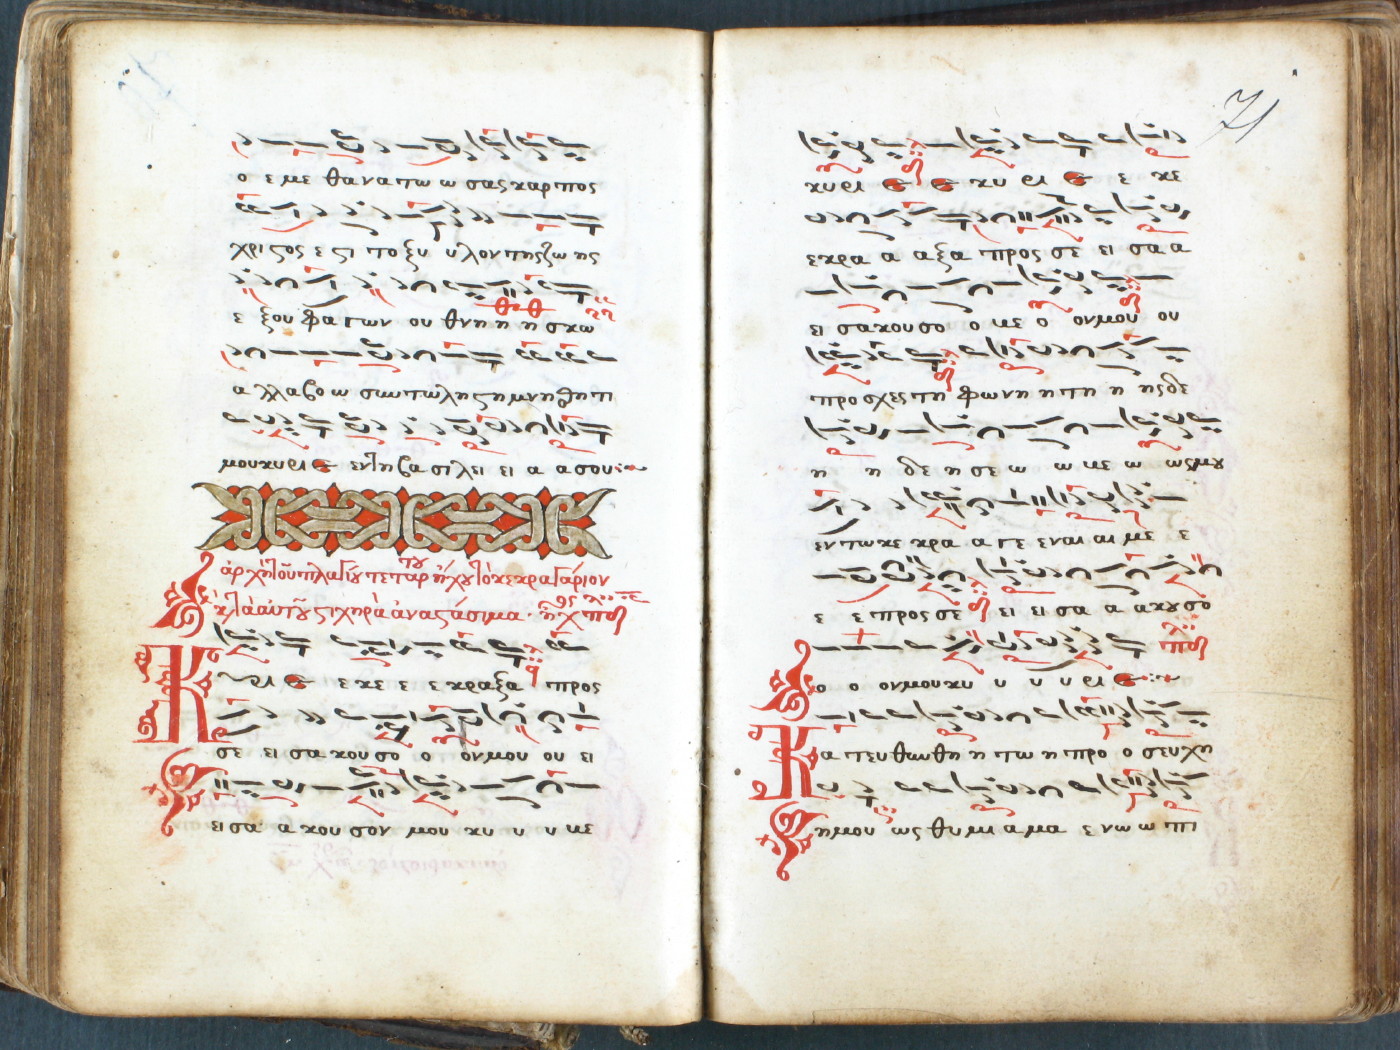 ο ε με θανατω ω σας καρπος
χριςος ε ςι το ξυ υλον της ζω ης
ε ξου φαγων ου θνη η η σκω
α λλα βο ω συν τω λη ςη μνη θη τι
μου κυριε εν τη βα σι λει ει α α σου
ἀρχὴ τοῦ πλαγίου τετάρτου ἤχου τὸ κεκραγάριον
κ τὰ αὐτοῦ ςιχηρὰ ἀναςάσιμα
Κυριε ε κε ε ε κραξα προς
σε ει σα κου σο ο ον μου ου ει
εισα α κου σον μου κυ υ υ υ με
71
κυρι ε ε κυ ρι ε ε κε
εκρα α α ξα προς σε ει σα α
ει σα κου σο ο με ο ον μου ου
προσχες τη φωνη η τη η ης δε
η η δε η σε ω ω με ω ως μου
εν τω κε κρα α γε εναι αι με ε
ε ε προς σε ει ει σα α α κου σο
ο ο ον μου κυ υ υ υ ρι ε
Κα τευ θυν θη η τω η προ ο σευ χη
η μου ως θυ μι α μα ε νω ω πι